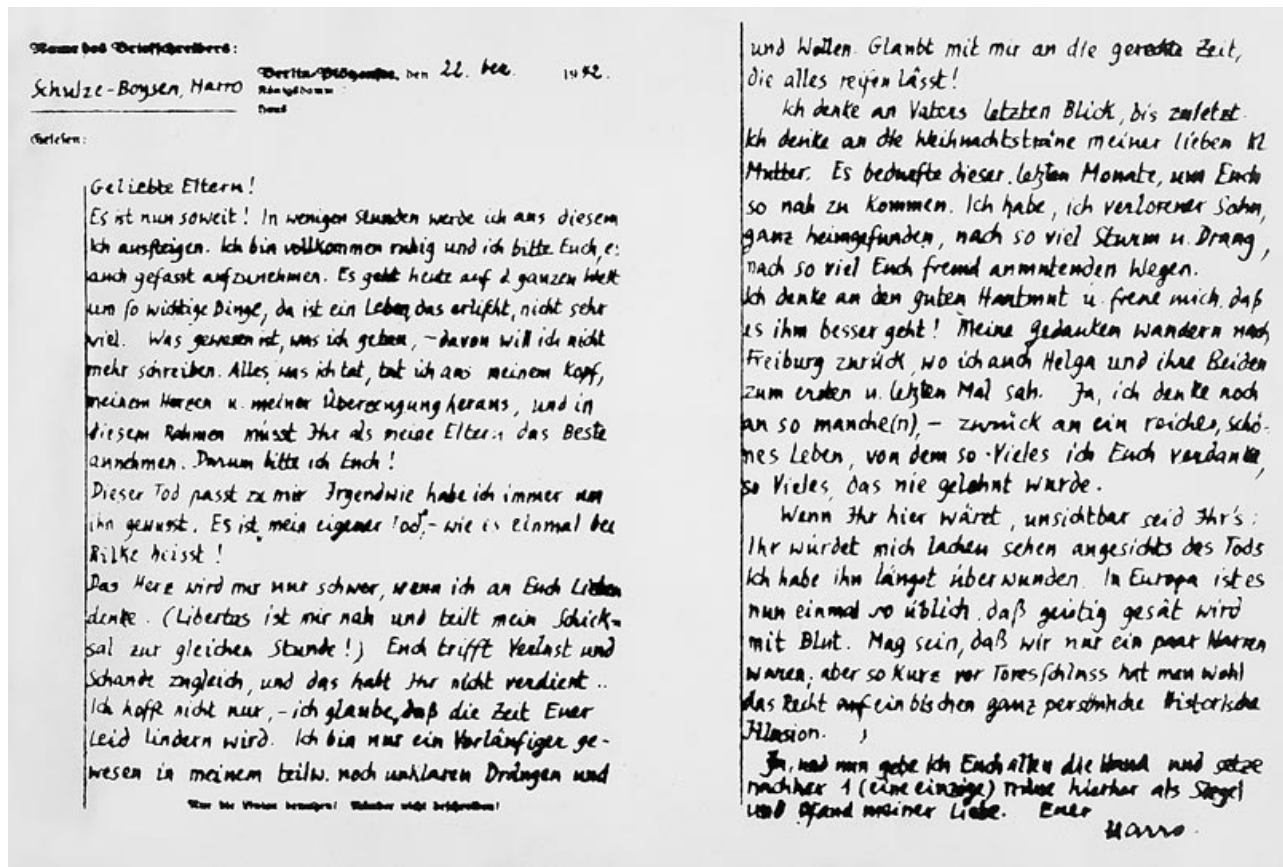 Name des Briefschreibers:
Schulze-Boysen, Harro
Berlin-Plötzensee, den 22. Dez. 1942.
Königsdamm
Haus
Gelesen:
Geliebte Eltern!
Es ist nun soweit! In wenigen Stunden werde ich aus diesem
Ich aussteigen. Ich bin vollkommen ruhig und ich bitte Euch, e:
auch gefasst aufzunehmen. Es geht heute auf d. ganzen Welt
um so wichtige Dinge, da ist ein Leben, das erlischt, nicht sehr
viel. Was gewesen ist, was ich getan, – davon will ich nicht
mehr schreiben. Alles, was ich tat, tat ich aus meinem Kopf,
meinem Herzen u. meiner Überzeugung heraus, und in
diesem Rahmen müsst Ihr als meine Eltern das Beste
annehmen. Darum bitte ich Euch!
Dieser Tod passt zu mir. Irgendwie habe ich immer um
ihn gewusst. Es ist „mein eigener Tod“, – wie es einmal bei
Rilke heisst!
Das Herz wird mir nur schwer, wenn ich an Euch Lieben
denke. (Libertas ist mir nah und teilt mein Schick=
sal zur gleichen Stunde!) Euch trifft Verlust und
Schande zugleich, und das habt Ihr nicht verdient ..
Ich hoffe nicht nur, – ich glaube, daß die Zeit Euer
Leid lindern wird. Ich bin nur ein Vorläufiger ge-
wesen in meinem teilw. noch unklaren Drängen und
Nur die Linien benutzen! Ränder nicht beschreiben!
und Wollen. Glaubt mit mir an die gerechte Zeit,
die alles reifen lässt!
Ich denke an Vaters letzten Blick, bis zuletzt.
Ich denke an die Weihnachtsträne meiner lieben kl
Mutter. Es bedurfte dieser letzten Monate, um Euch
so nah zu kommen. Ich habe, ich verlorener Sohn,
ganz heimgefunden, nach so viel Sturm u. Drang,
nach so viel Euch fremd anmutenden Wegen.
Ich denke an den guten Hartmut u. freue mich, daß
es ihm besser geht! Meine Gedanken wandern nach
Freiburg zurück, wo ich auch Helga und ihre Beiden
zum ersten u. letzten Mal sah. Ja, ich denke noch
an so manche(n), – zurück an ein reiches, schö-
nes Leben, von dem so Vieles ich Euch verdanke,
so Vieles, das nie gelohnt wurde.
Wenn Ihr hier wäret, unsichtbar seid Ihr's:
Ihr würdet mich lachen sehen angesichts des Tods
Ich habe ihn längst überwunden. In Europa ist es
nun einmal so üblich, daß geistig gesät wird
mit Blut. Mag sein, daß wir nur ein paar Narren
waren, aber so kurz vor Toresschluss hat man wohl
das Recht auf ein bischen ganz persönliche historische
Illusion.
Ja, und nun gebe ich Euch allen die Hand und setze
nachher 1 (eine einzige) Träne hierher als Siegel
und Pfand meiner Liebe. Euer
Harro.